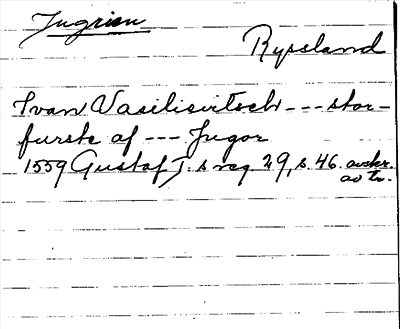 Jugrien
Ryssland
Ivan Vasilievitsch --- stor-
furste af --- Jugor
1559 Gustaf I.s reg. 29, s. 46. avskr.
av tr.